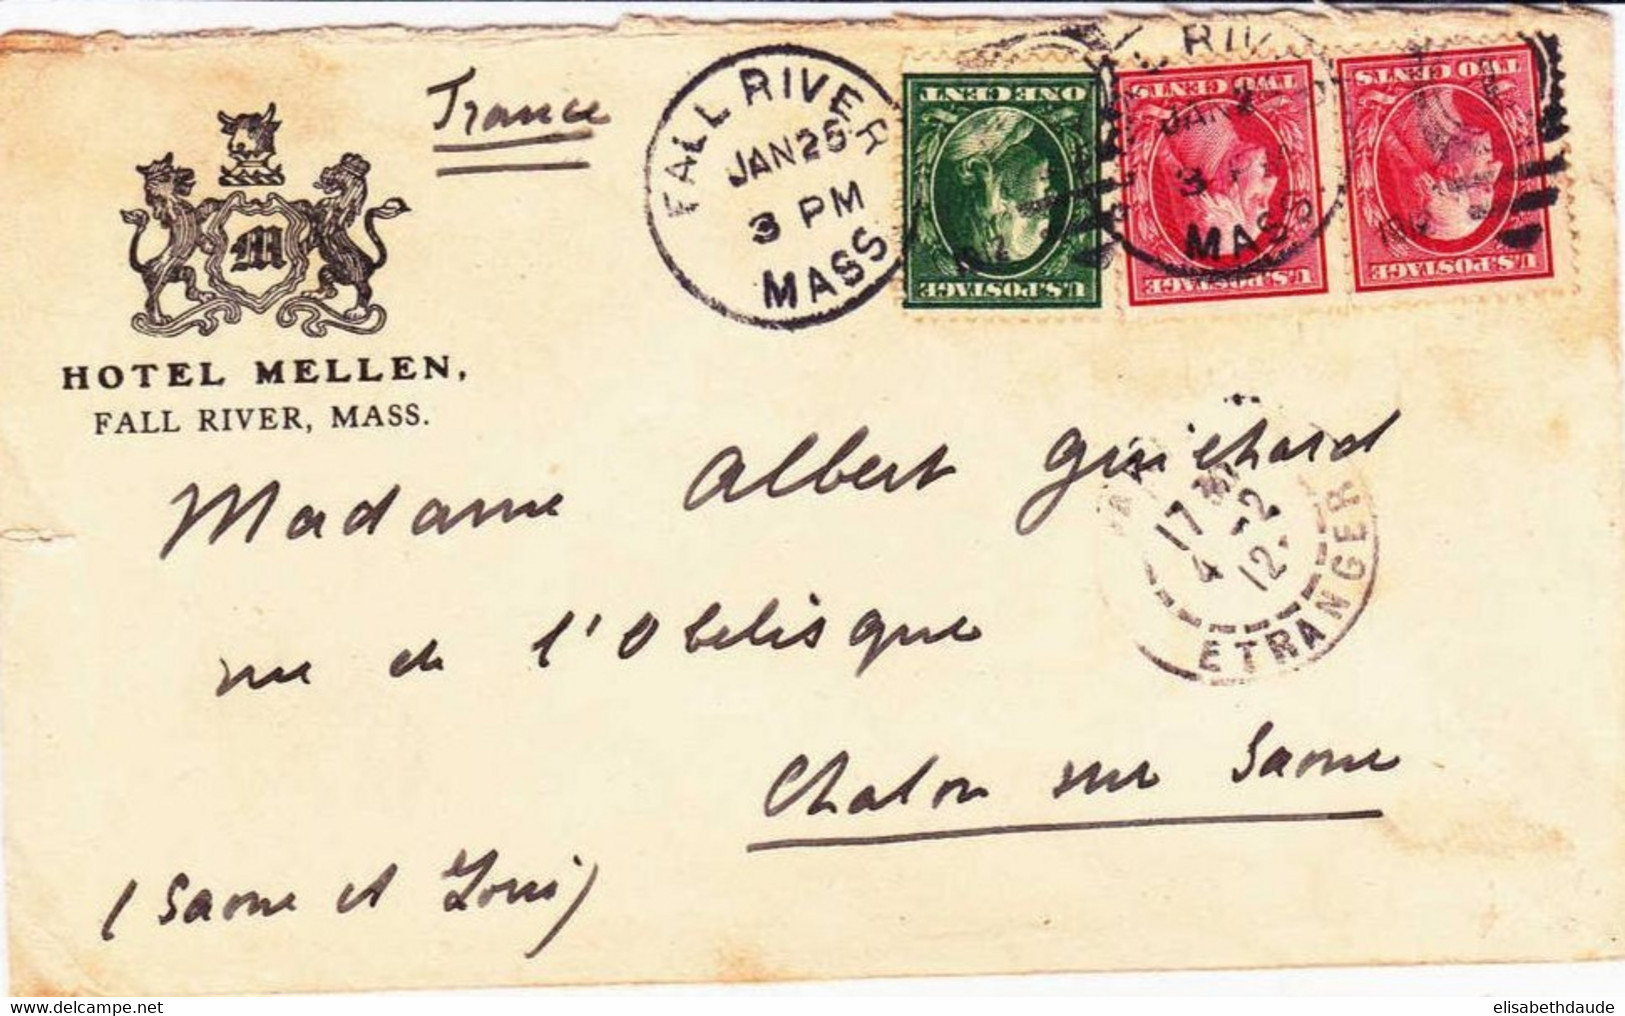 France
FALL RIVER
JAN 26
3 PM
MASS
1912
ONE CENT
U.S. POSTAGE
TWO CENTS
U.S. POSTAGE
TWO CENTS
U.S. POSTAGE
RIV
JAN 2
3 P
MASS
1912
M
HOTEL MELLEN,
FALL RIVER, MASS.
Madame Albert Guichard
rue de l'Obelisque
Chalon sur Saone
(Saone et Loire)
17
4 -2
12
ETRANGER
elisabethdaude